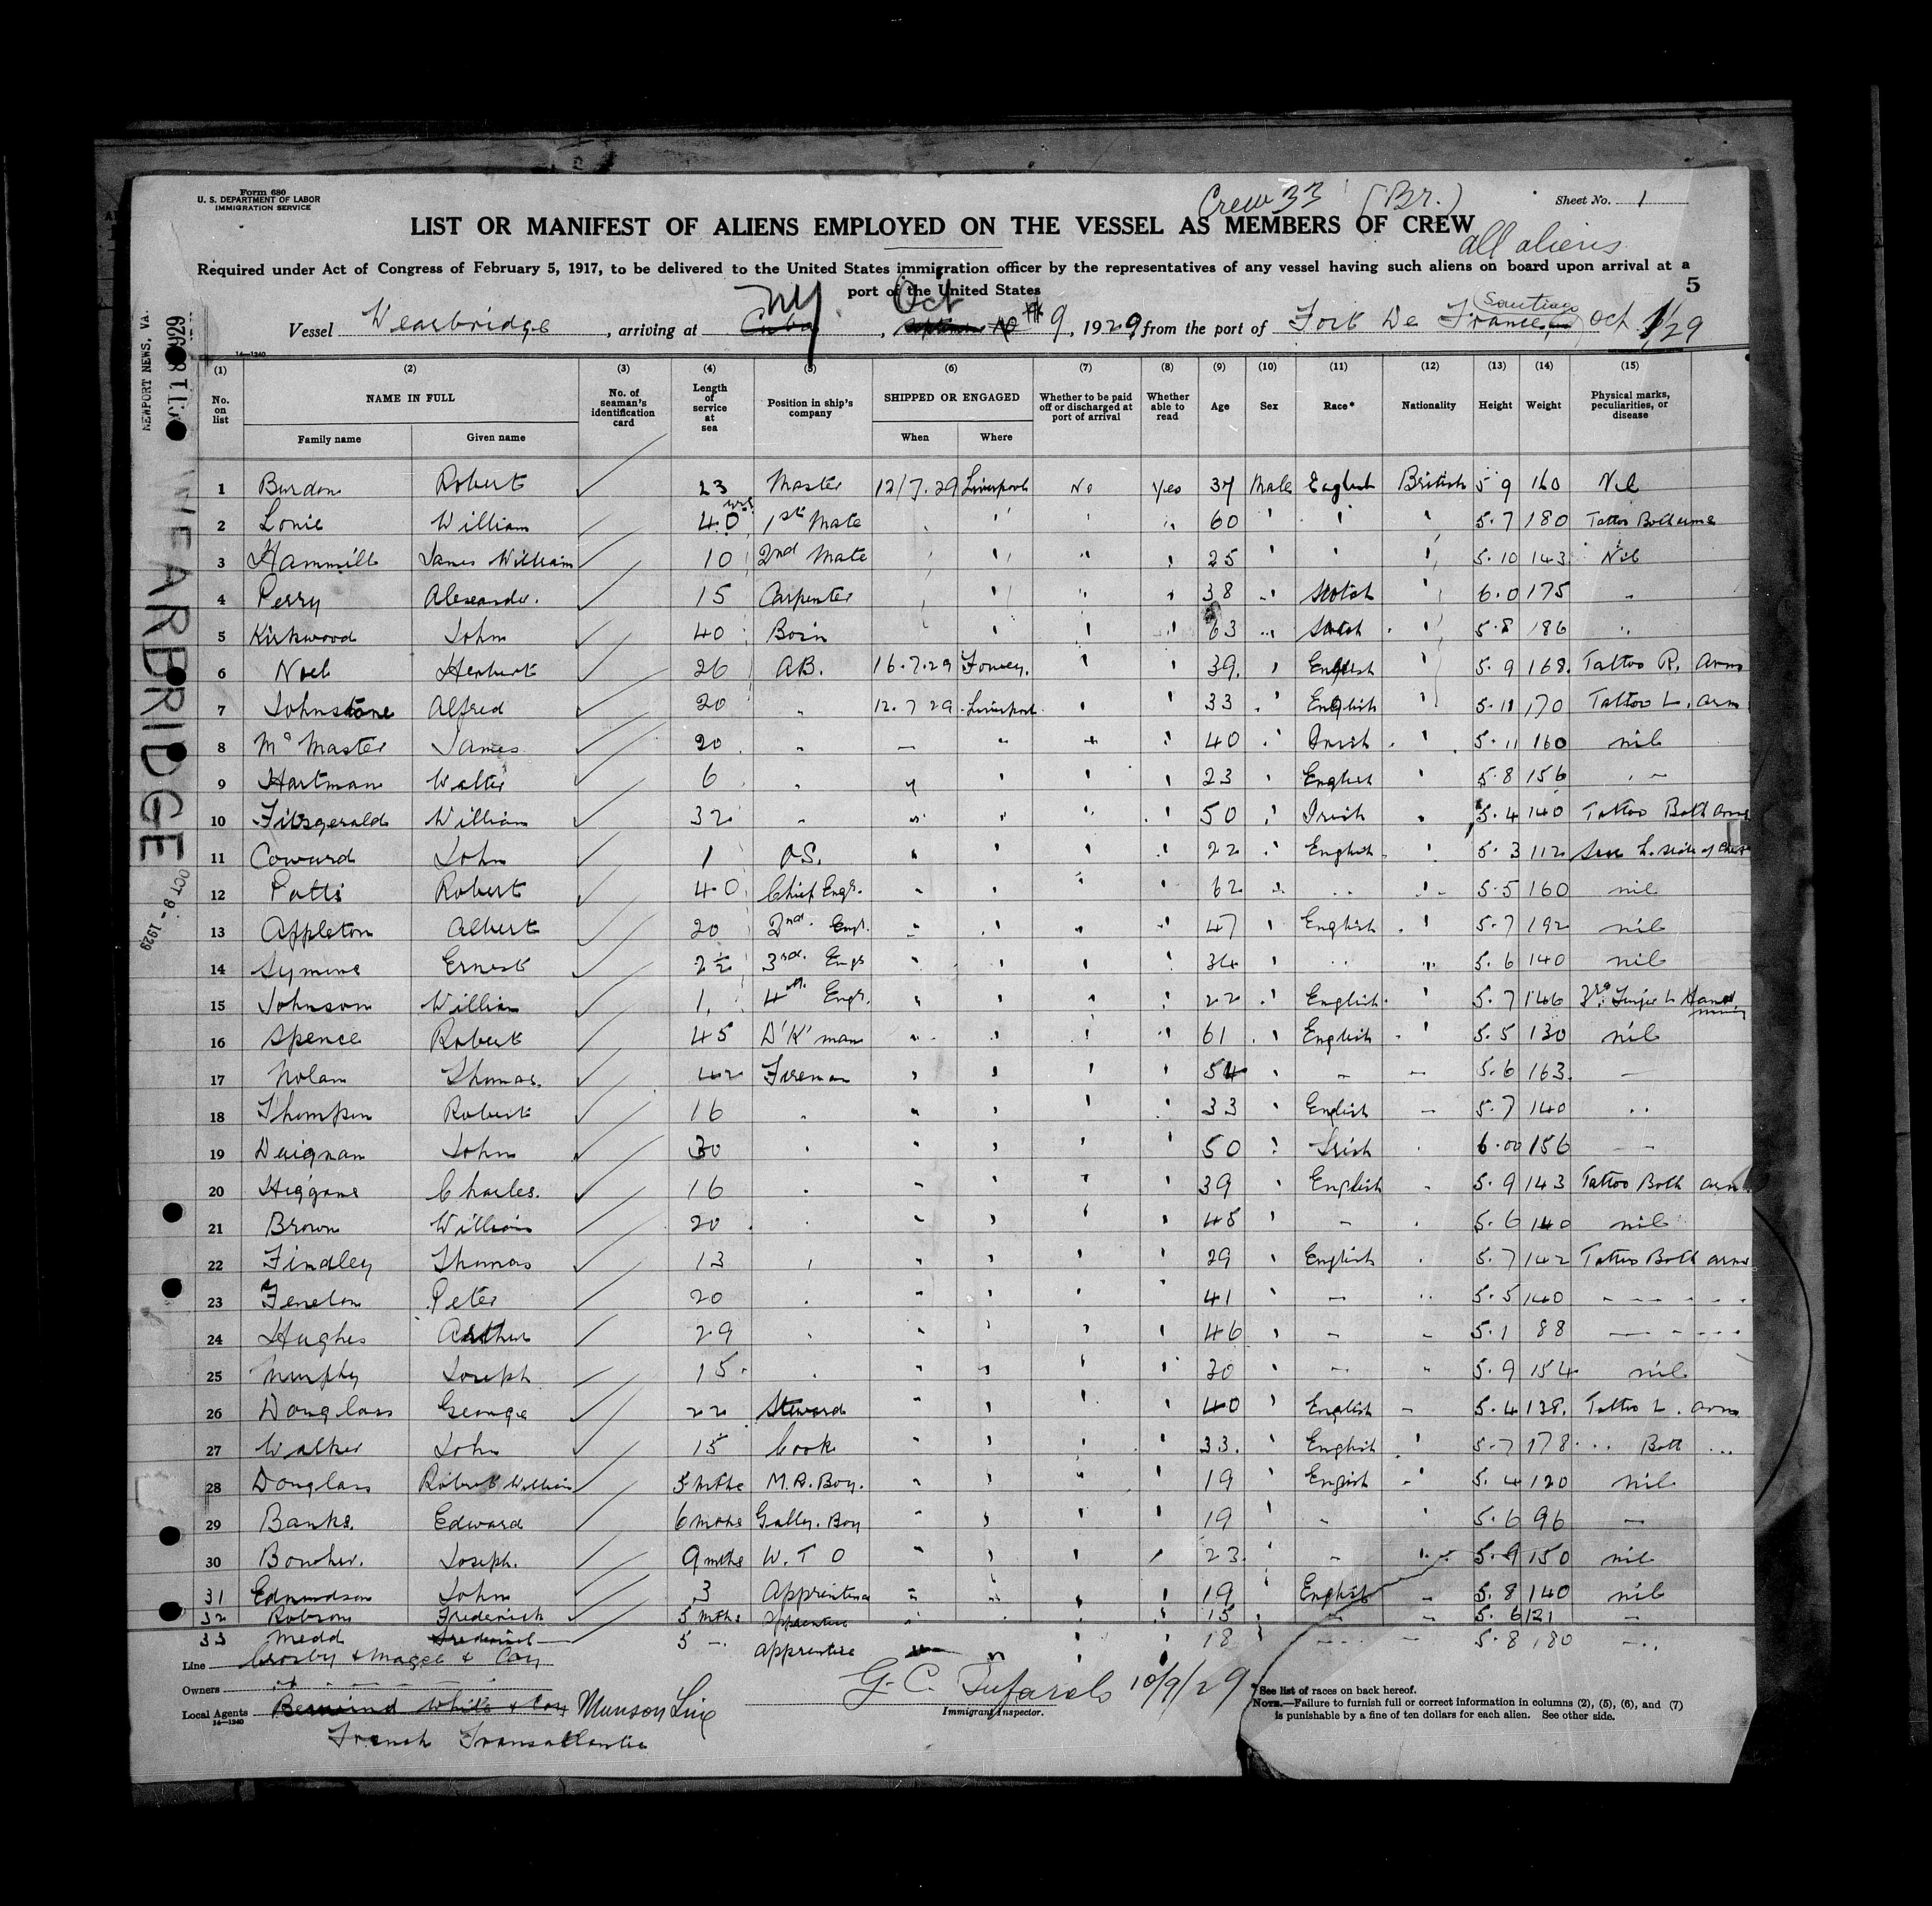 Form 680
U. S. DEPARTMENT OF LABOR
IMMIGRATION SERVICE
Crew 33 (Br.)
Sheet No. 1
LIST OR MANIFEST OF ALIENS EMPLOYED ON THE VESSEL AS MEMBERS OF CREW
all aliens
Required under Act of Congress of February 5, 1917, to be delivered to the United States immigration officer by the representatives of any vessel having such aliens on board upon arrival at a
port of the United States
5
NY Oct Santiago
Vessel Wearbridge, arriving at Cuba, 9, 1929, from the port of Fort De France, Oct 1/29
14—1240
(1) (2) (3) (4) (5) (6) (7) (8) (9) (10) (11) (12) (13) (14) (15)
No. on list NAME IN FULL No. of seaman's identification card Length of service at sea Position in ship's company SHIPPED OR ENGAGED Whether to be paid off or discharged at port of arrival Whether able to read Age Sex Race* Nationality Height Weight Physical marks, peculiarities, or disease
Family name Given name When Where
1 Burdon Robert 23 yrs Master 12/7.29 Liverpool No Yes 37 Male English British 5 9 160 Nil
2 Lonie William 40 1st Mate " " " 60 " " " 5.7 180 Tattoo Both arms
3 Hammill James William 10 2nd Mate " " " 25 " " " 5.10 143 Nil
4 Perry Alexander. 15 Carpenter " " " 38 " Scotch " 6.0 175 "
5 Kirkwood John 40 Bosn " " " 63 " Scotch " 5.8 186 "
6 Noel Herbert 26 AB. 16.7.29 Fowey. " " 39. " English " 5.9 168. Tattoo R. arm
7 Johnstone Alfred 20 " 12.7 29 Liverpool " " 33 " English " 5.11 170 Tattoo L. arm
8 Mc Master James 20 " " " " 40 " Irish " 5.11 160 nil
9 Hartman Walter 6 " " " " " 23 " English " 5.8 156 "
10 Fitzgerald William 32 " " " " " 50 " Irish " 5.4 140 Tattoo Both arms
11 Coward John 1 O.S. " " " " 22 " English " 5.3 112 L. side of chest
12 Potts Robert 40 Chief Engr. " " " " 62 " " " 5.5 160 nil
13 Appleton Albert 20 2nd. Engr. " " " " 47 " English " 5.7 192 nil
14 Symons Ernest 2½ 3rd. Engr " " " " 34 " " " 5.6 140 nil
15 Johnson William 1. 4th Engr. " " " " 22 " English " 5.7 146 3rd Finger L Hand missing
16 Spence Robert 45 D'K'man " " " " 61 " English " 5.5 130 nil
17 Nolan Thomas. 42 Fireman " " " " 54 " " " 5.6 163. "
18 Thompson Robert 16 " " " " " 33 " English " 5.7 140 "
19 Deignan John 30 " " " " " 50 " Irish " 6.00 156 "
20 Higgans Charles. 16 " " " " " 39 " English " 5.9 143 Tattoo Both arm
21 Brown William 20 " " " " " 45 " " " 5.6 140 nil
22 Findley Thomas 13 " " " " " 29 " English " 5.7 142 Tattoo Both arms
23 Fenelon Peter 20 " " " " " 41 " " " 5.5 140 " " "
24 Hughes Arthur 29 " " " " " 46 " " " 5.1 88 " " "
25 Murphy Joseph 15 " " " " " 30 " " " 5.9 154 nil
26 Douglass George 22 Steward " " " " 40 " English " 5.4 138. Tattoo L. arm
27 Walker John 15 Cook " " " " 33. " English " 5.7 178 " Both "
28 Douglass Robert William 5 mths M.R. Boy. " " " " 19 " English " 5.4 120 nil
29 Banks. Edward 6 mths Galley. Boy " " " " 19 " " " 5.6 96 "
30 Boucher. Joseph. 9 mths W. T O " " " " 23. " " " 5.9 150 nil
31 Edmundson John 3 Apprentice " " " " 19 " English " 5.8 140 nil
32 Robson Frederick 5 mths apprentice " " " " 15 " " " 5.6 121 "
33 Medd Frederick 5 " apprentice " " " " 18 " " " 5.8 180 "
Line Crosby & Magee & Coy
Owners
Local Agents Berwind White & Coy Munson Line
14—1240
French Transatlantic
G. C. Tufarolo 10/9/29
Immigrant Inspector.
* See list of races on back hereof.
NOTE.—Failure to furnish full or correct information in columns (2), (5), (6), and (7)
is punishable by a fine of ten dollars for each alien. See other side.
NEWPORT NEWS, VA.
WEARBRIDGE
OCT 9 - 1929